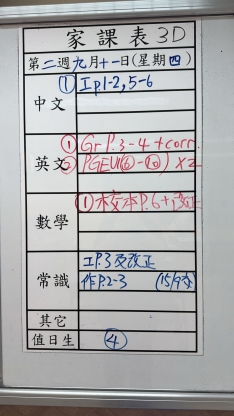 家課表3D
第二週九月十一日(星期四)
中文 ① I p1-2, 5-6
英文 ① Gr P.3-4 + corr.
② PGEU1(⑥-⑩) x2
數學 ① 校本P.6+改正
常識 工P.3及改正
作P.2-3 (15/9交)
其它
值日生 ④